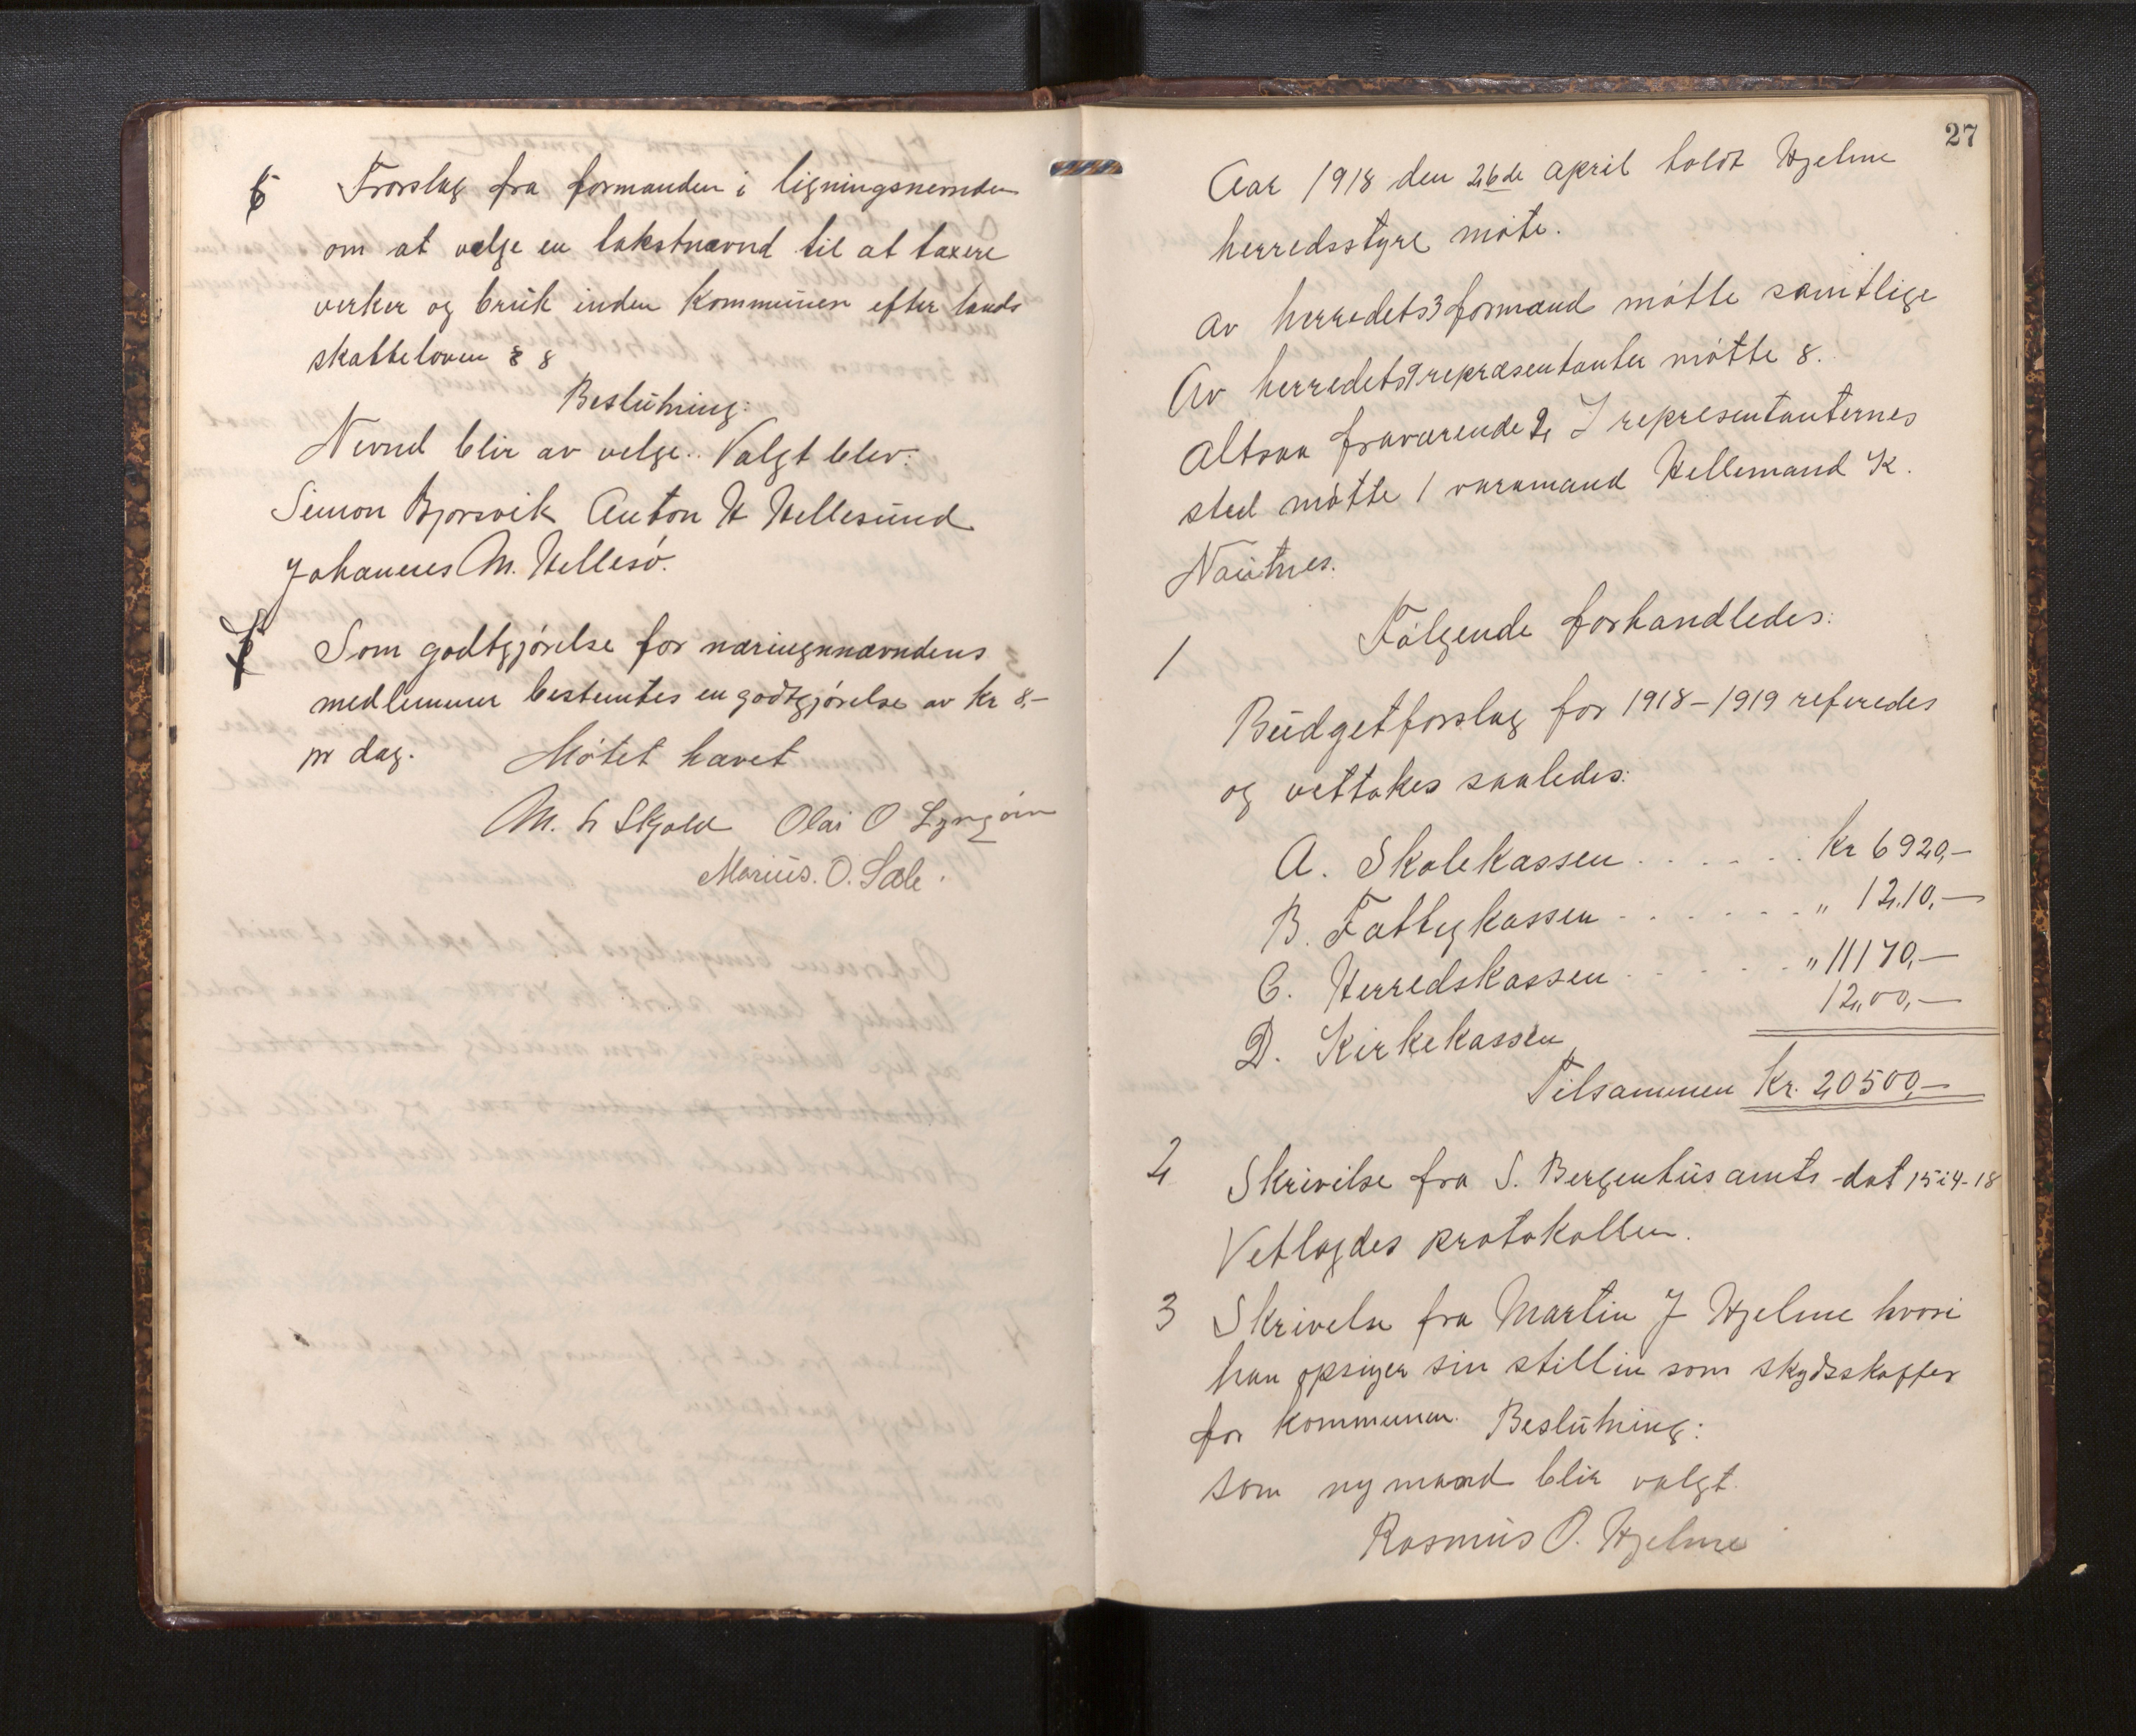 6 Forslag fra formanden i ligningsnemden
om at velge en takstnævnd til at taxere
verker og bruk inden Kommunen efter lands
skatteloven § 8
Beslutning:
Nevnd blir av velge.. Valgt blev:
Simon Bjorsvik Anton H Hellesund
Johannes M. Hellesö.
7 Som godtgjörelse for næringsnævndens
medlemmer bestemtes en godtgjörelse av Kr 8,-
pr dag. Mötet hævet
M. H Skjold Olai O Lyngöin
Marius. O. Sæle.
27
Aar 1918 den 26de april holdt Hjelme
herredsstyre möte.
Av herredets 3 formænd mötte samtlige
Av herredets 9 repræsentanter mötte 8.
Altsaa fraværende 2, I representanternes
sted mötte 1 varamand Hellemand K.
Nautnes.
Fölgende forhandledes:
1
Budgetforslag for 1918-1919 referedes
og vettakes saaledes:
A. Skolekassen . . . . . . Kr 6920,-
B. Fattigkassen . . . . . . " 1210,-
C. Herredskassen . . . . . " 11170,-
D. Kirkekassen 1200,-
Tilsammen Kr. 20500,-
2 Skrivilse fra S. Bergenhus amts -dat 15i4-18
Vetlagdes protokollen.
3 Skrivelse fra Martin J Hjelme hvori
han opsiger sin stillin som skydsskaffer
for kommunen. Beslutning:
som ny mand blir valgt.
Rasmus O. Hjelme